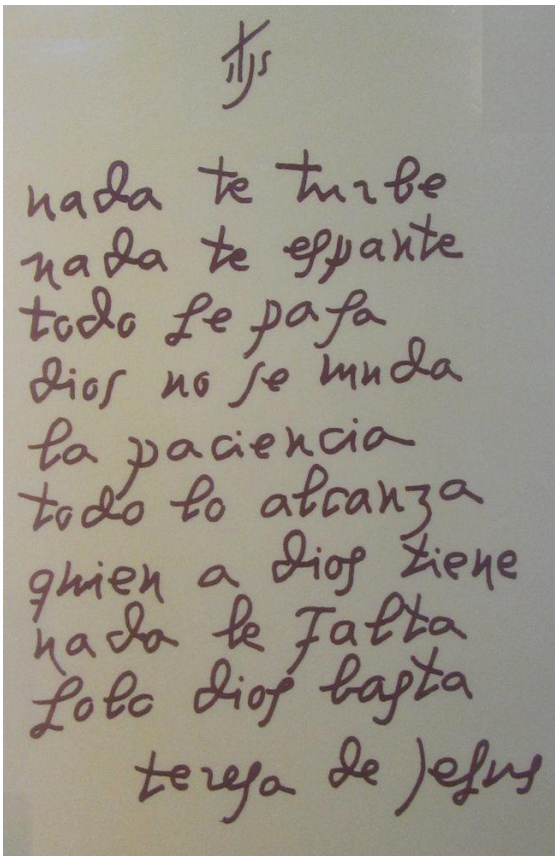 jhs
nada te turbe
nada te espante
todo se pasa
dios no se muda
la paciencia
todo lo alcanza
quien a dios tiene
nada le falta
solo dios basta
teresa de Jesus